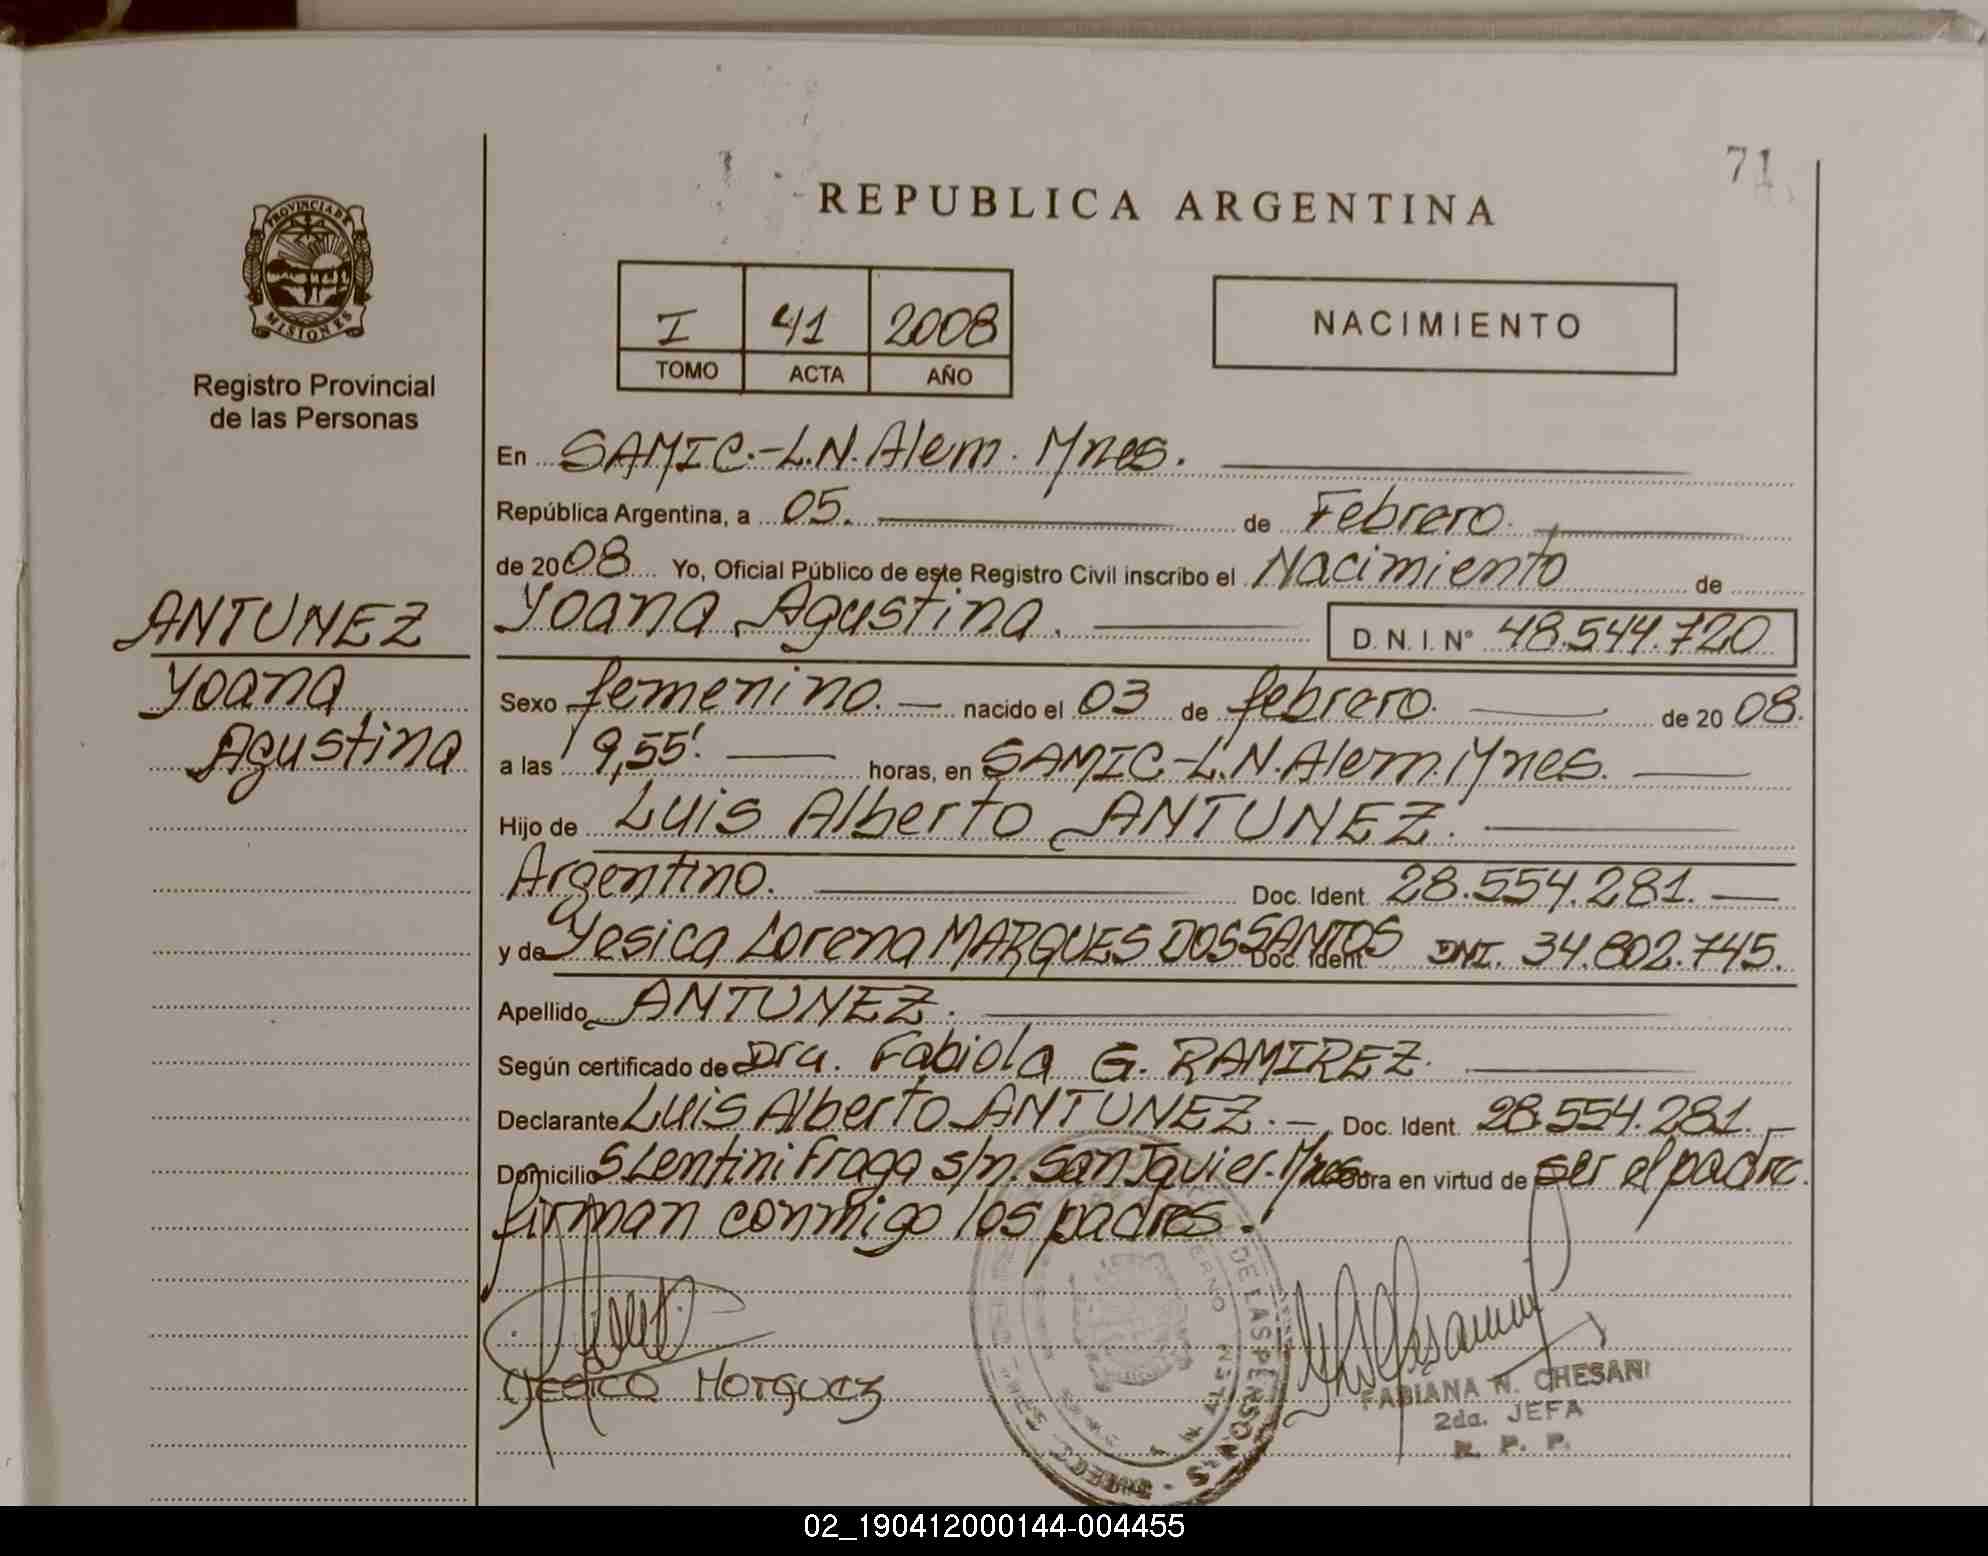 71
REPUBLICA ARGENTINA
PROVINCIA DE
MISIONES
Registro Provincial
de las Personas
I 41 2008
TOMO ACTA AÑO
NACIMIENTO
ANTUNEZ
Yoana
Agustina
En SAMIC.-L.N. Alem. Mnes.
República Argentina, a 05. de Febrero.
de 2008 Yo, Oficial Público de este Registro Civil inscribo el Nacimiento de
Yoana Agustina. D. N. I. N° 48.544.720
Sexo femenino. nacido el 03 de febrero. de 20 08.
a las 9,55'. horas, en SAMIC-L.N. Alem. Mnes.
Hijo de Luis Alberto ANTUNEZ.
Argentino. Doc. Ident. 28.554.281.
y de Yesica Lorena MARQUES DOS SANTOS Doc. Ident. DNI. 34.802.745.
Apellido ANTUNEZ.
Según certificado de Dra. Fabiola G. RAMIREZ.
Declarante Luis Alberto ANTUNEZ. Doc. Ident. 28.554.281.
Domicilio S. Lentini Fraga s/n. San Javier. Mnes. Obra en virtud de ser el padre.
firman conmigo los padres.
DE LAS PERSONAS
FABIANA N. CHESANI
2da. JEFA
R. P. P.
02_190412000144-004455